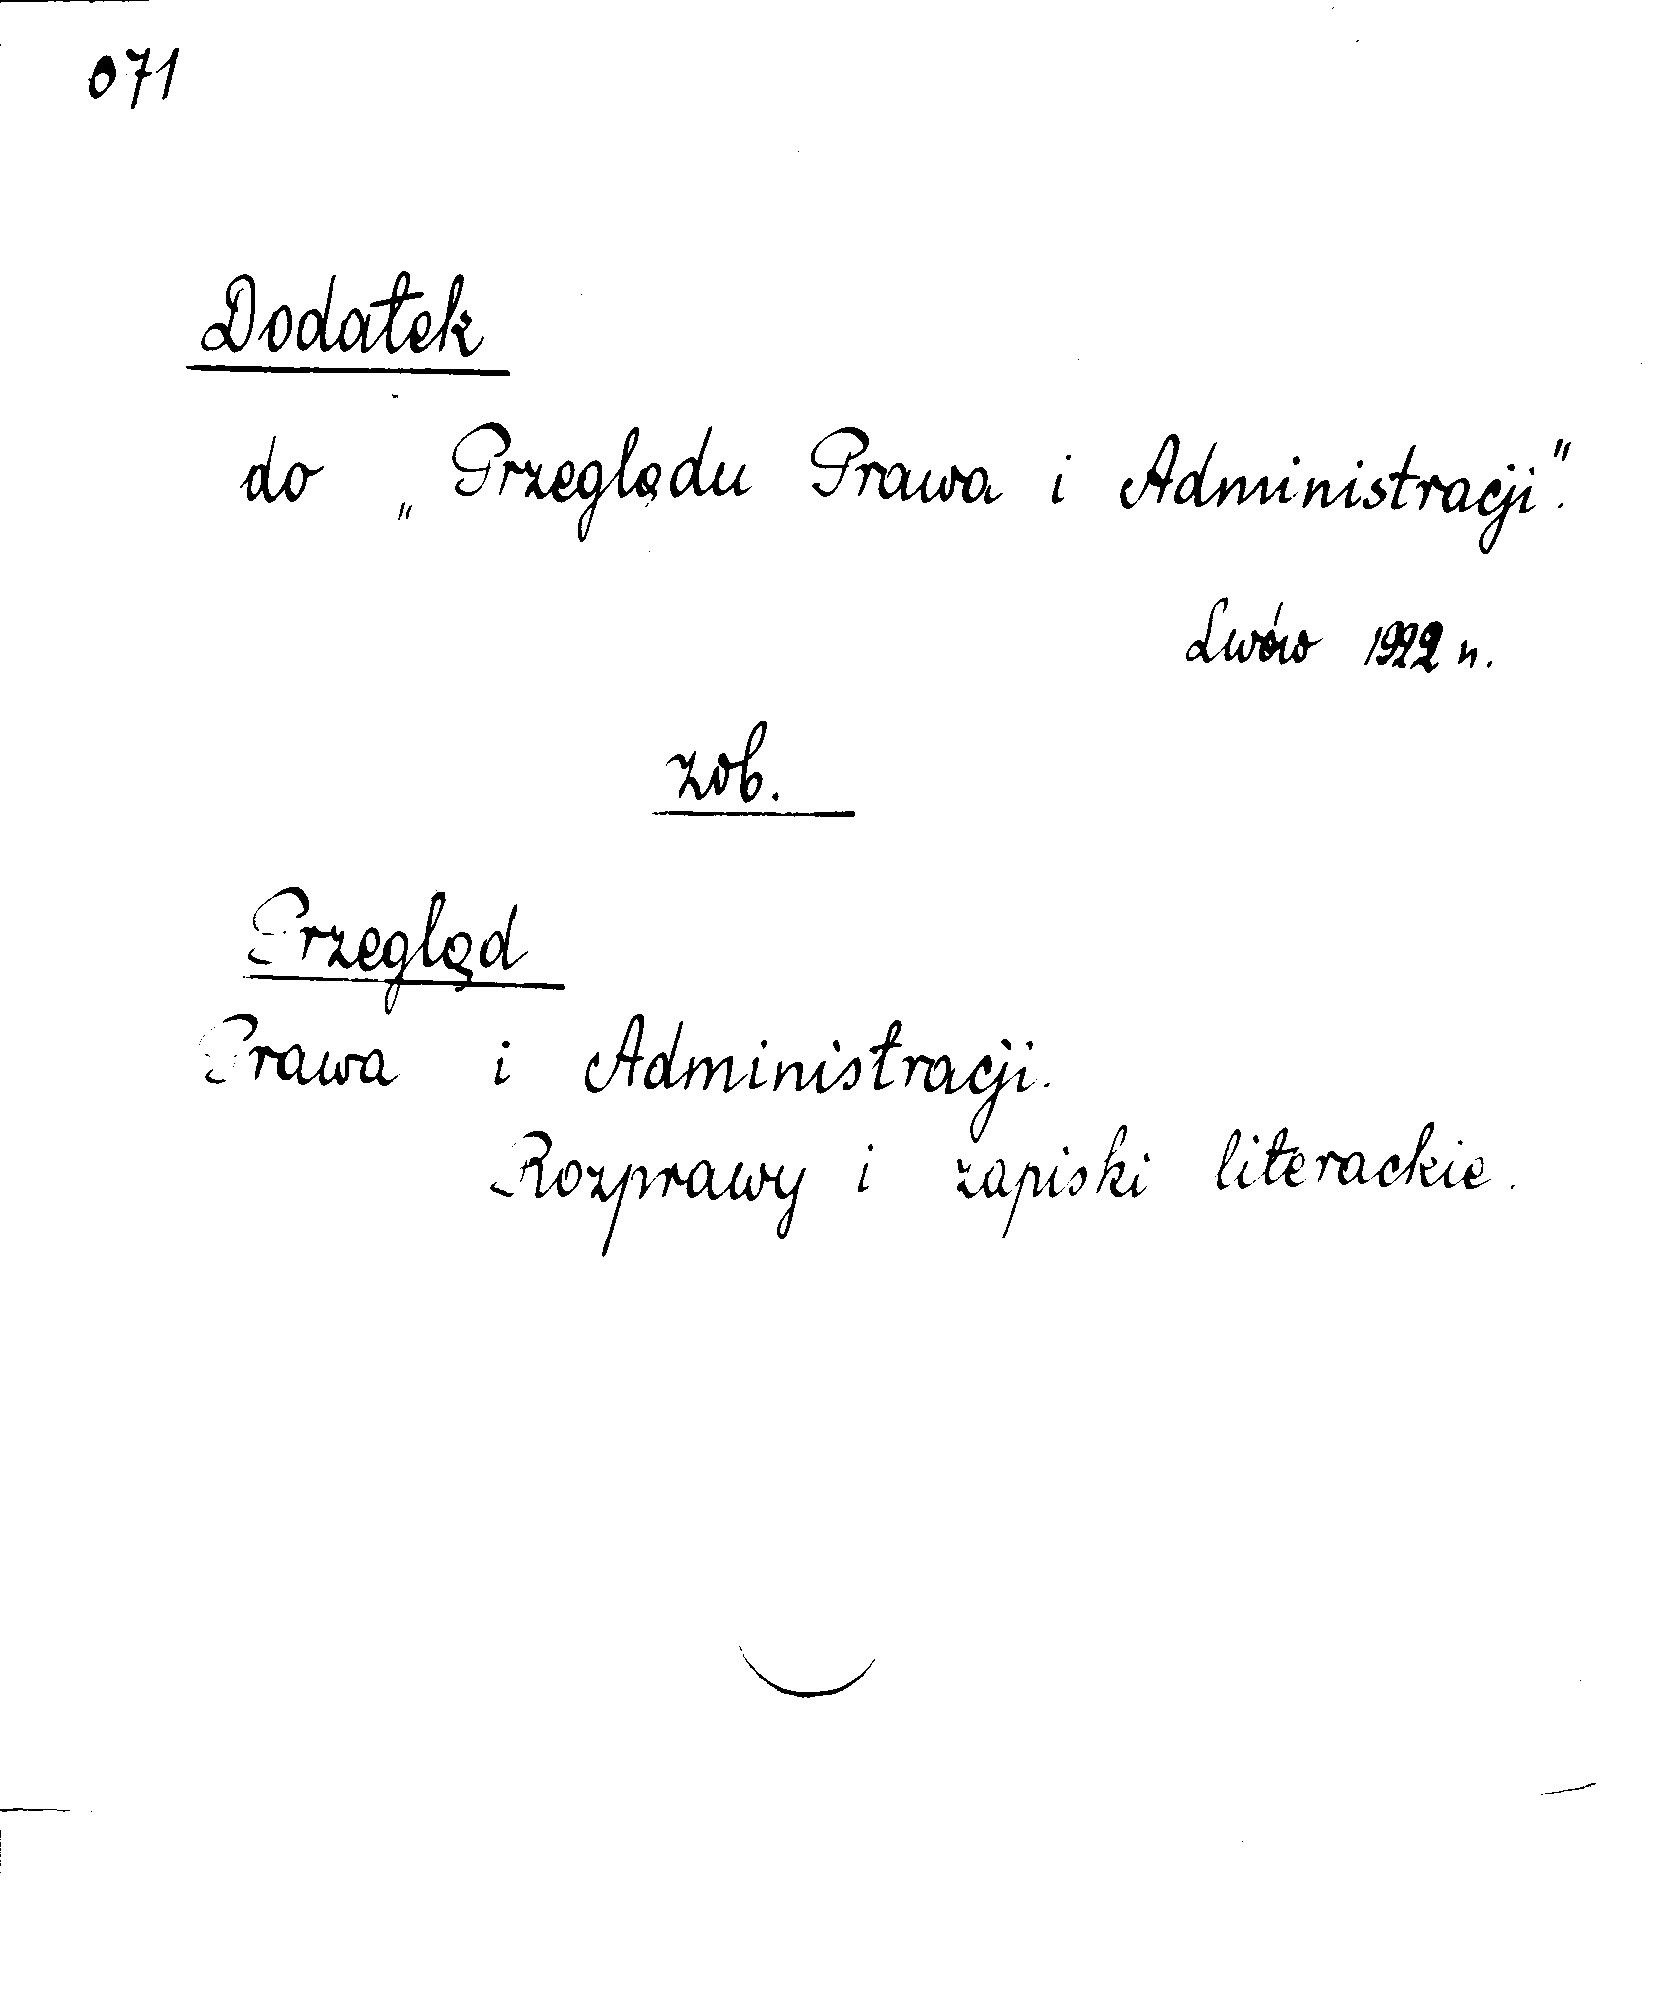 071
Dodatek
do „Przeglądu Prawa i Administracji".
Lwów 1922 n.
zob.
Przegląd
Prawa i Administracji.
Rozprawy i zapiski literackie.